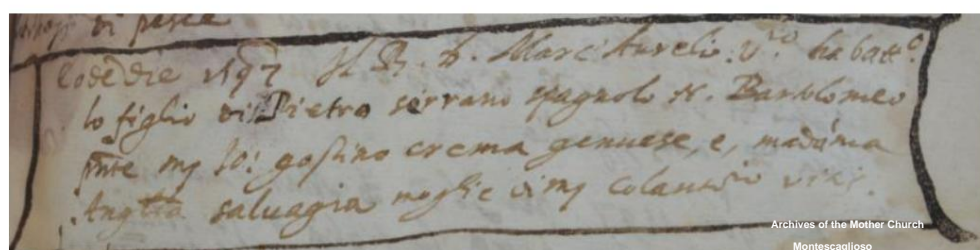 di pasca
Eodē die 1597 Il R. D. Marc' Aurelio V.rio ha batt.o
lo figlio di Pietro serrano spagnolo N. Bartolomeo
pnte m͂ Io: gosino crema genuese, e, madāma
Ang.tta saluagia moglie di m͂ Colantonio
Archives of the Mother Church
Montescaglioso